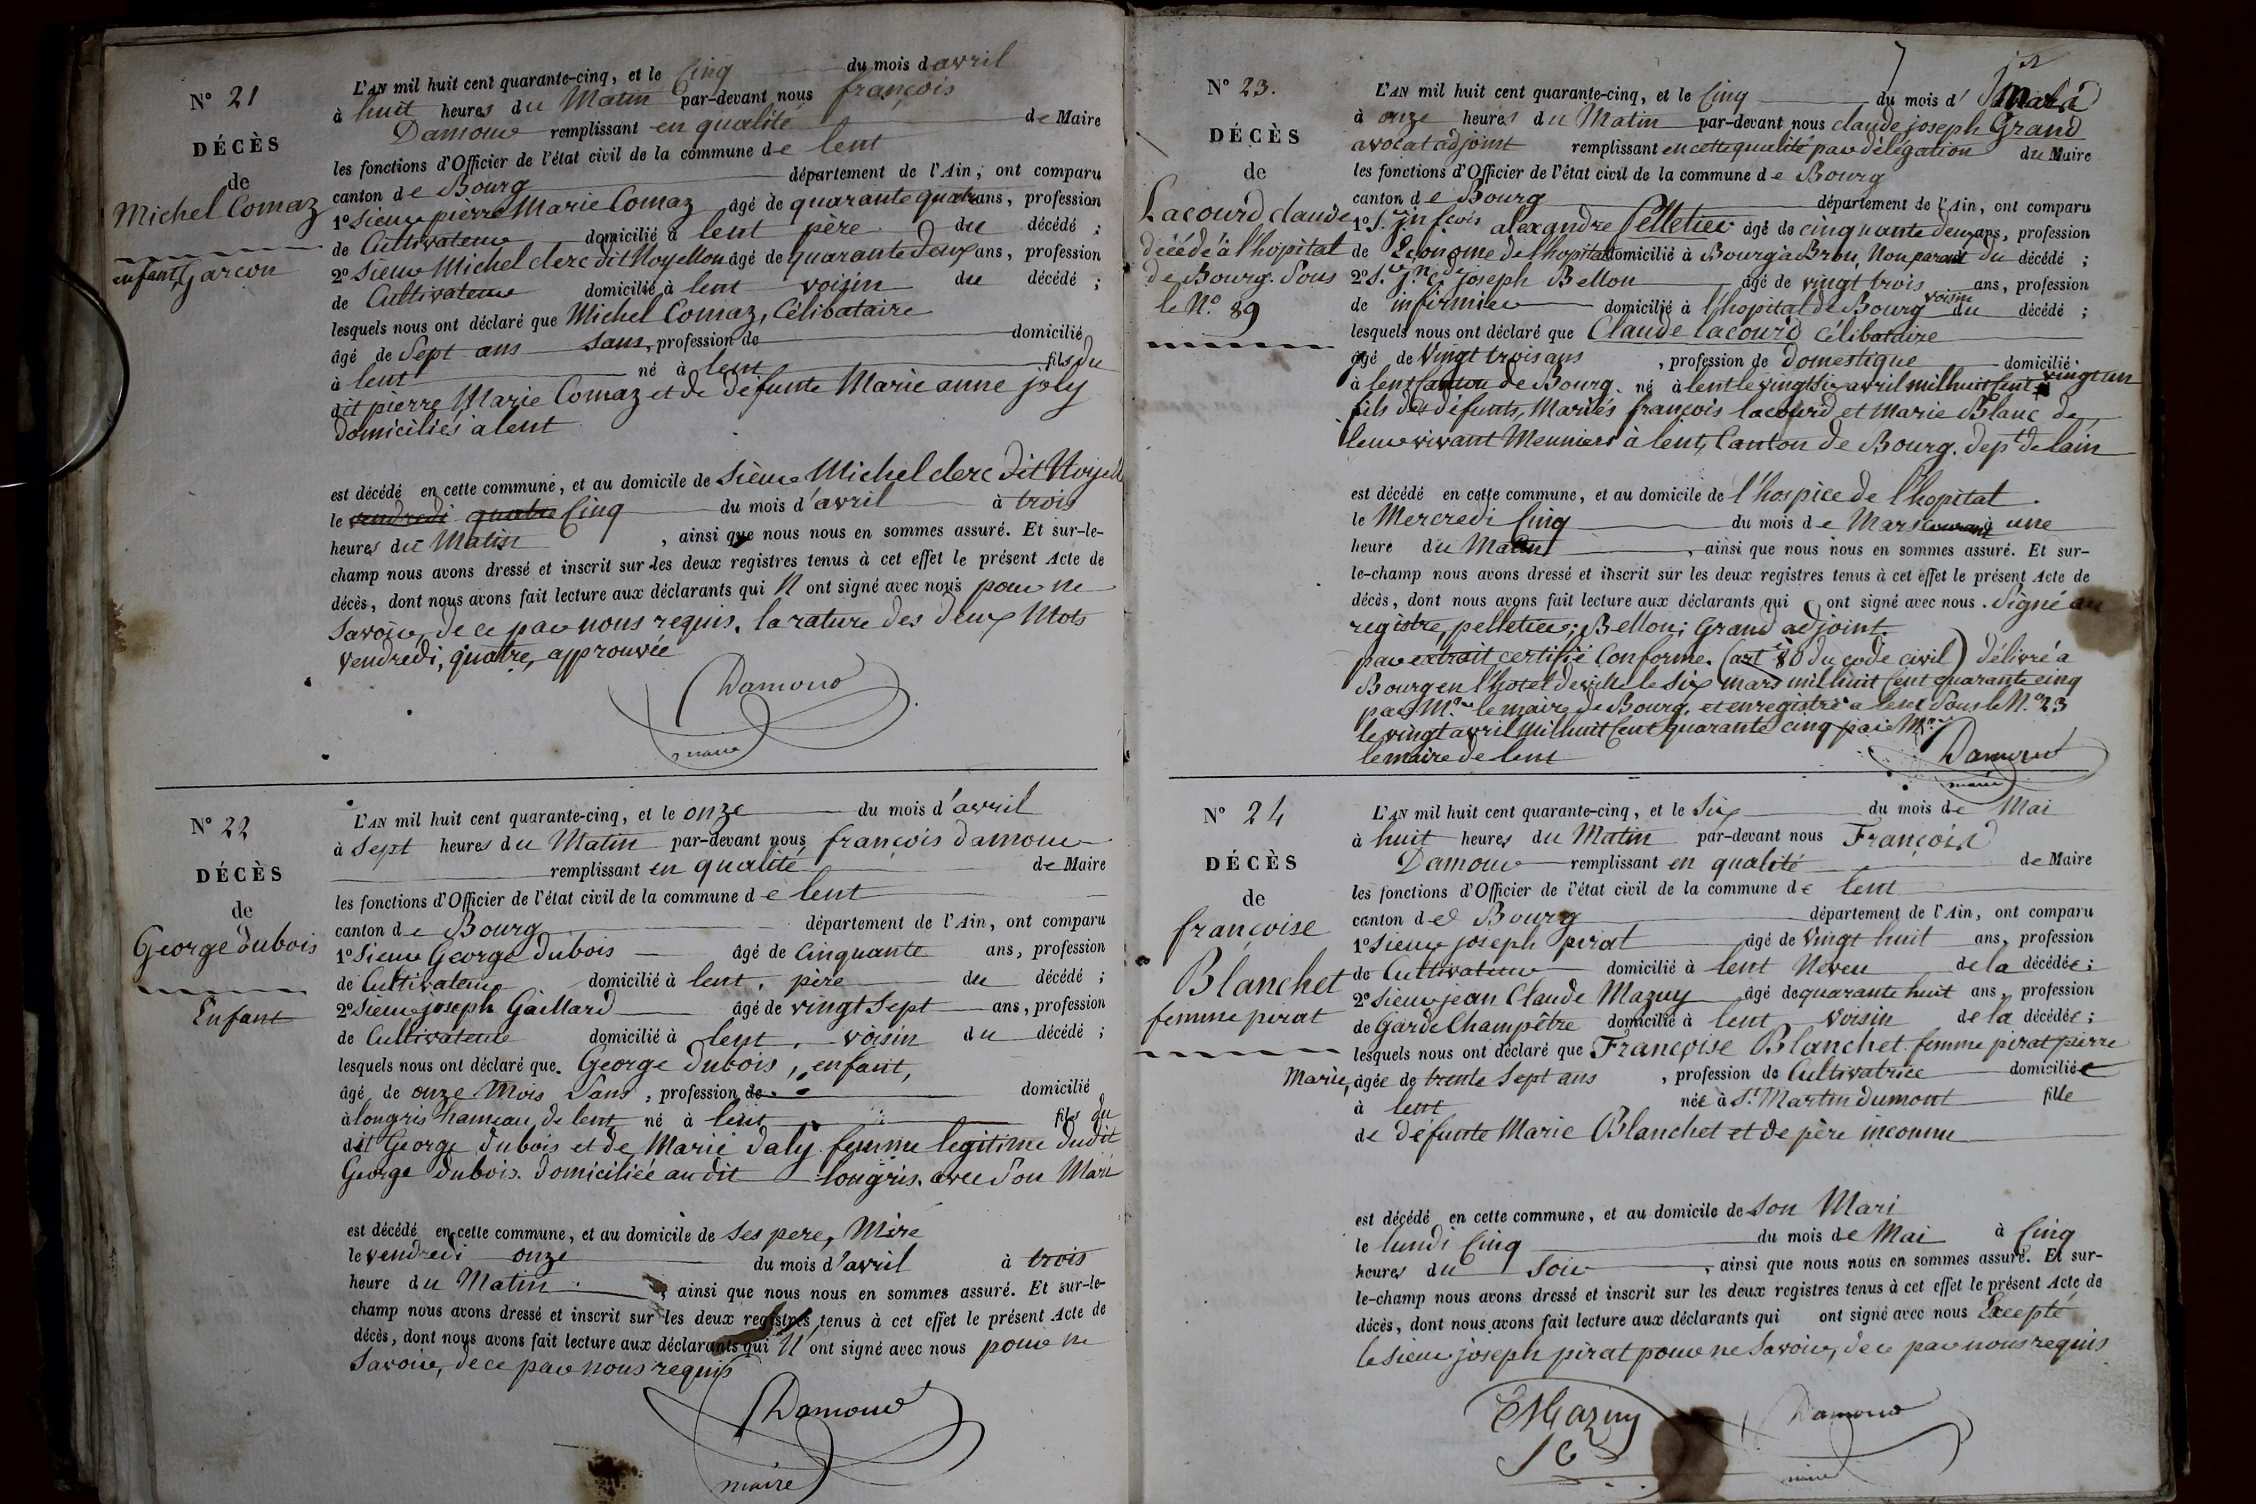 N° 21
DÉCÈS
de
Michel Comaz
enfant, Garcon
L'AN mil huit cent quarante-cinq, et le Cinq du mois d'avril
à huit heures du Matin par-devant nous françois
Damour remplissant en qualité de Maire
les fonctions d'Officier de l'état civil de la commune de lent
canton de Bourg département de l'Ain, ont comparu
1° Sieur pierre Marie Comaz âgé de quarante quatre ans, profession
de Cultivateur domicilié à lent père du décédé ;
2° Sieur Michel clerc dit Noyellon âgé de quarante deux ans, profession
de Cultivateur domicilié à lent voisin du décédé ;
lesquels nous ont déclaré que Michel Comaz, Célibataire
âgé de Sept ans sans, profession de domicilié
à lent né à lent fils du
dit pierre Marie Comaz et de défunte Marie anne joly
domiciliés a lent
est décédé en cette commune, et au domicile de Sieur Michel clerc dit
le vendredi quatre Cinq du mois d'avril à trois
heures du Matin, ainsi que nous nous en sommes assuré. Et sur-le-
champ nous avons dressé et inscrit sur les deux registres tenus à cet effet le présent Acte de
décès, dont nous avons fait lecture aux déclarants qui N'ont signé avec nous pour ne
Savoir, de ce par nous requis, la rature des deux Mots
vendredi, quatre, approuvée
Damour
maire
N° 22
DÉCÈS
de
George dubois
Enfant
L'AN mil huit cent quarante-cinq, et le onze du mois d'avril
à Sept heures du Matin par-devant nous françois damour
remplissant en qualité de Maire
les fonctions d'Officier de l'état civil de la commune de lent
canton de Bourg département de l'Ain, ont comparu
1° Sieur George dubois âgé de Cinquante ans, profession
de Cultivateur domicilié à lent, père du décédé ;
2° Sieur joseph Gaillard âgé de vingt Sept ans, profession
de Cultivateur domicilié à lent, voisin du décédé ;
lesquels nous ont déclaré que George dubois, enfant,
âgé de onze Mois Sans, profession de domicilié
à longris hameau de lent né à lent fils du
dit George dubois et de Marie daly femme legitime dudit
George dubois domiciliée au dit longris avec Son Mari
est décédé en cette commune, et au domicile de Ses pere, Mère
le vendredi onze du mois d'avril à trois
heure du Matin, ainsi que nous nous en sommes assuré. Et sur-le-
champ nous avons dressé et inscrit sur les deux registres tenus à cet effet le présent Acte de
décès, dont nous avons fait lecture aux déclarants qui N'ont signé avec nous pour ne
Savoir, de ce par nous requis
Damour
maire
N° 23.
DÉCÈS
de
Lacourd claude
décédé à l'hopital
de Bourg. Sous
le N° 89
L'AN mil huit cent quarante-cinq, et le Cinq du mois d' Mars
à onze heures du Matin par-devant nous claude joseph Grand
avocat adjoint remplissant en cette qualité par délégation du Maire
les fonctions d'Officier de l'état civil de la commune de Bourg
canton de Bourg département de l'Ain, ont comparu
1° S.r j.n f.cois alexandre Pelletier âgé de cinquante deux ans, profession
de Econome de l'hopital domicilié à Bourg à Brou, Non parent du décédé ;
2° S.r joseph Bellon âgé de vingt trois ans, profession
de infirmier domicilié à l'hopital de Bourg voisin du décédé ;
lesquels nous ont déclaré que Claude lacourd Célibataire
âgé de Vingt trois ans, profession de domestique domicilié
à lent Canton de Bourg. né à lent le vingt Six avril mil huit Cent vingt un
fils des défunts, Mariés françois lacourd et Marie Blanc de
leur vivant Meuniers à lent, Canton de Bourg. dept de lain
est décédé en cette commune, et au domicile de l'hospice de l'hopital
le Mercredi Cinq du mois de Mars courant à une
heure du Matin, ainsi que nous nous en sommes assuré. Et sur-
le-champ nous avons dressé et inscrit sur les deux registres tenus à cet effet le présent Acte de
décès, dont nous avons fait lecture aux déclarants qui ont signé avec nous. Signé au
registre, pelletier; Bellon; Grand adjoint.
par extrait certifié Conforme. (art 80 du code civil) délivré a
Bourg en l'hotel de ville le Six mars mil huit Cent quarante cinq
par M.r le maire de Bourg, et enregistré a lent Sous le N° 23
le vingt avril Mil huit Cent quarante cinq par M.r
le maire de lent
Damour
maire
N° 24
DÉCÈS
de
françoise
Blanchet
femme pirat
L'AN mil huit cent quarante-cinq, et le Six du mois de Mai
à huit heures du Matin par-devant nous François
Damour remplissant en qualité de Maire
les fonctions d'Officier de l'état civil de la commune de lent
canton de Bourg département de l'Ain, ont comparu
1° Sieur joseph pirat âgé de Vingt huit ans, profession
de Cultivateur domicilié à lent Neveu de la décédée ;
2° Sieur jean Claude Mazuy âgé de quarante huit ans, profession
de Garde Champêtre domicilié à lent Voisin de la décédée ;
lesquels nous ont déclaré que Françoise Blanchet femme pirat pierre
Marie, âgée de trente Sept ans, profession de Cultivatrice domiciliée
à lent née à S.t Martin dumont fille
de défunte Marie Blanchet et de père inconnu
est décédé en cette commune, et au domicile de Son Mari
le lundi Cinq du mois de Mai à Cinq
heures du Soir, ainsi que nous nous en sommes assuré. Et sur-
le-champ nous avons dressé et inscrit sur les deux registres tenus à cet effet le présent Acte de
décès, dont nous avons fait lecture aux déclarants qui ont signé avec nous Excepté
le Sieur joseph pirat pour ne Savoir, de ce par nous requis
Mazuy
Damour
maire